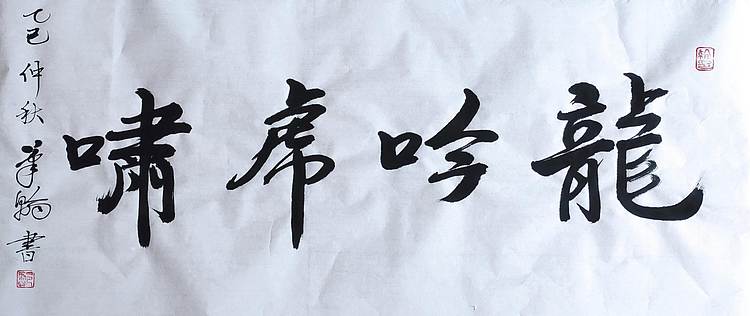 龍吟虎嘯
乙巳仲秋 書